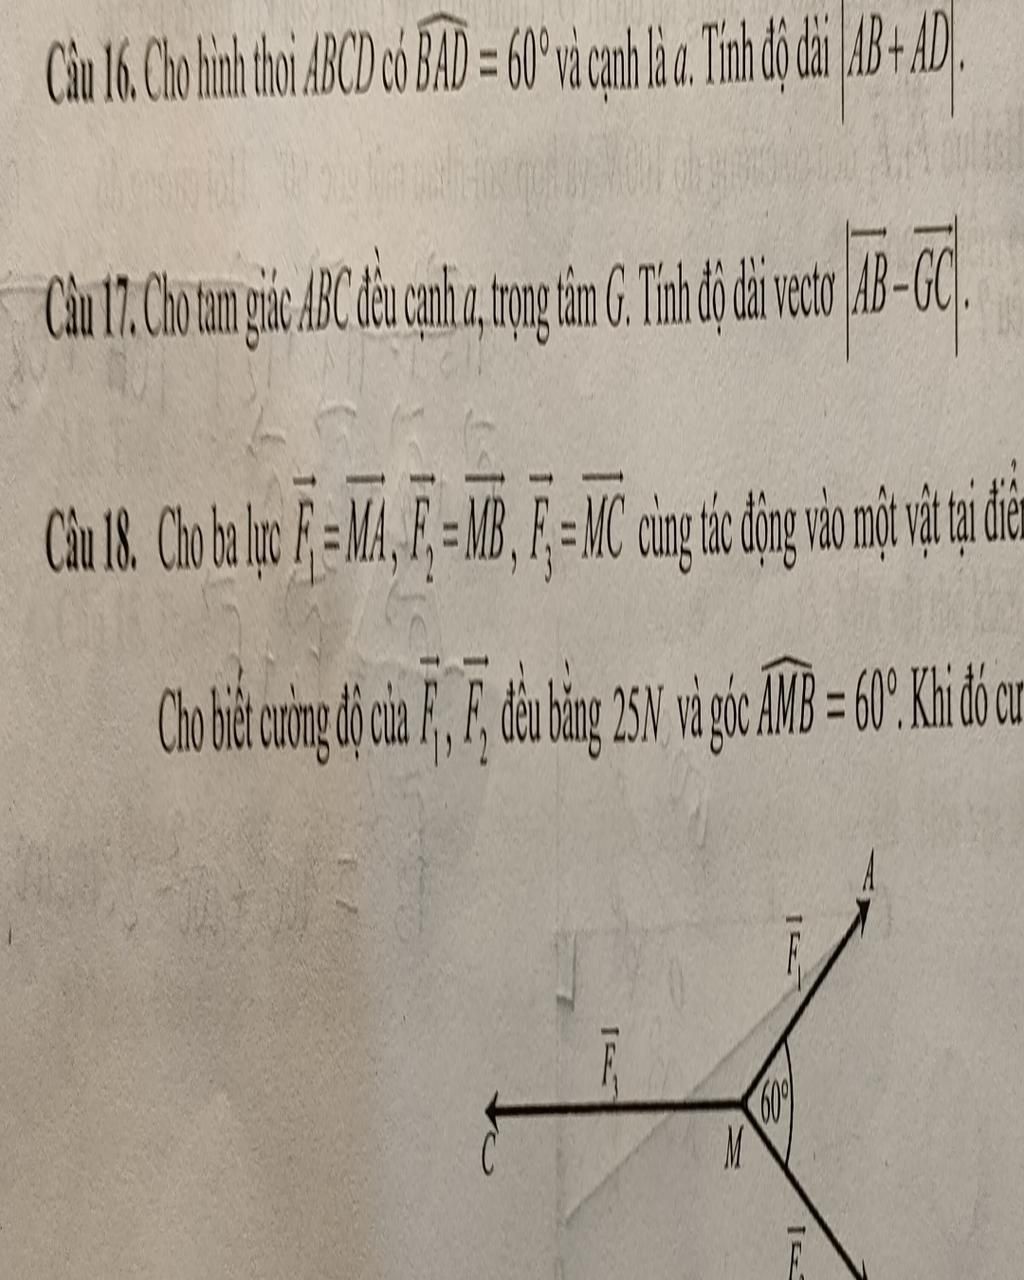 Câu 16. Cho hình thoi ABCD có \widehat{BAD} = 60° và cạnh là a. Tính độ dài |AB + AD|.
Câu 17. Cho tam giác ABC đều cạnh a, trọng tâm G. Tính độ dài vectơ |\overrightarrow{AB} − \overrightarrow{GC}|.
Câu 18. Cho ba lực \overrightarrow{F}_1 = \overrightarrow{MA}, \overrightarrow{F}_2 = \overrightarrow{MB}, \overrightarrow{F}_3 = \overrightarrow{MC} cùng tác động vào một vật tại
Cho biết cường độ của \overrightarrow{F}_1, \overrightarrow{F}_2 đều bằng 25N và góc \widehat{AMB} = 60°. Khi đó
A
\overrightarrow{F}_1
\overrightarrow{F}_3
60°
C
M